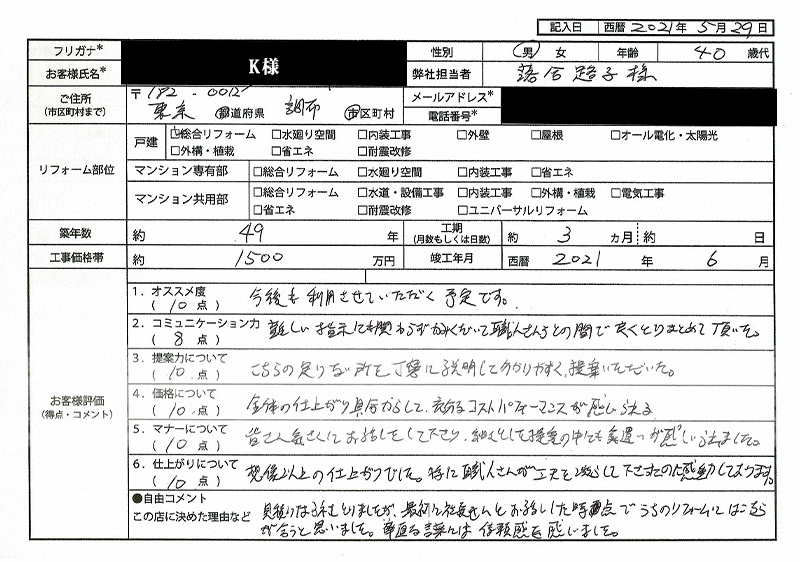 記入日 西暦 2021年 5月 29日
フリガナ* K様 性別 男 女 年齢 40 歳代
お客様氏名* 弊社担当者 落合 路子 様
ご住所 (市区町村まで) 〒182-0012 東京 都道府県 調布 市区町村 メールアドレス* 電話番号*
リフォーム部位
戸建 □総合リフォーム □水廻り空間 □内装工事 □外壁 □屋根 □オール電化・太陽光
□外構・植栽 □省エネ □耐震改修
マンション専有部 □総合リフォーム □水廻り空間 □内装工事 □省エネ
マンション共用部 □総合リフォーム □水道・設備工事 □内装工事 □外構・植栽 □電気工事
□省エネ □耐震改修 □ユニバーサルリフォーム
築年数 約 49 年 工期 (月数もしくは日数) 約 3 ヵ月 約 日
工事価格帯 約 1500 万円 竣工年月 西暦 2021 年 6 月
お客様評価 (得点・コメント)
1. オススメ度 (10点) 今後も利用させていただく予定です。
2. コミュニケーション力 (8点) 難しい指示にも関わらず 職人さんたちとの間で良くとりまとめて頂いた。
3. 提案力について (10点) こちらの足りない所を丁寧に説明してわかりやすく、提案いただいた。
4. 価格について (10点) 全体の仕上がり具合からして、充分コストパフォーマンスが感じられる
5. マナーについて (10点) 皆さん気さくにお話しをして下さり、 の中にも気遣いが感じられました。
6. 仕上がりについて (10点) 想像以上の仕上がりでした。特に職人さんが工夫を して下さったのに感動しております。
●自由コメント
この店に決めた理由など 見積りは とりましたが、最初に社長さんとお話しした時点でうちのリフォームにはこちら
が合うと思いました。率直な言葉には信頼感を感じました。